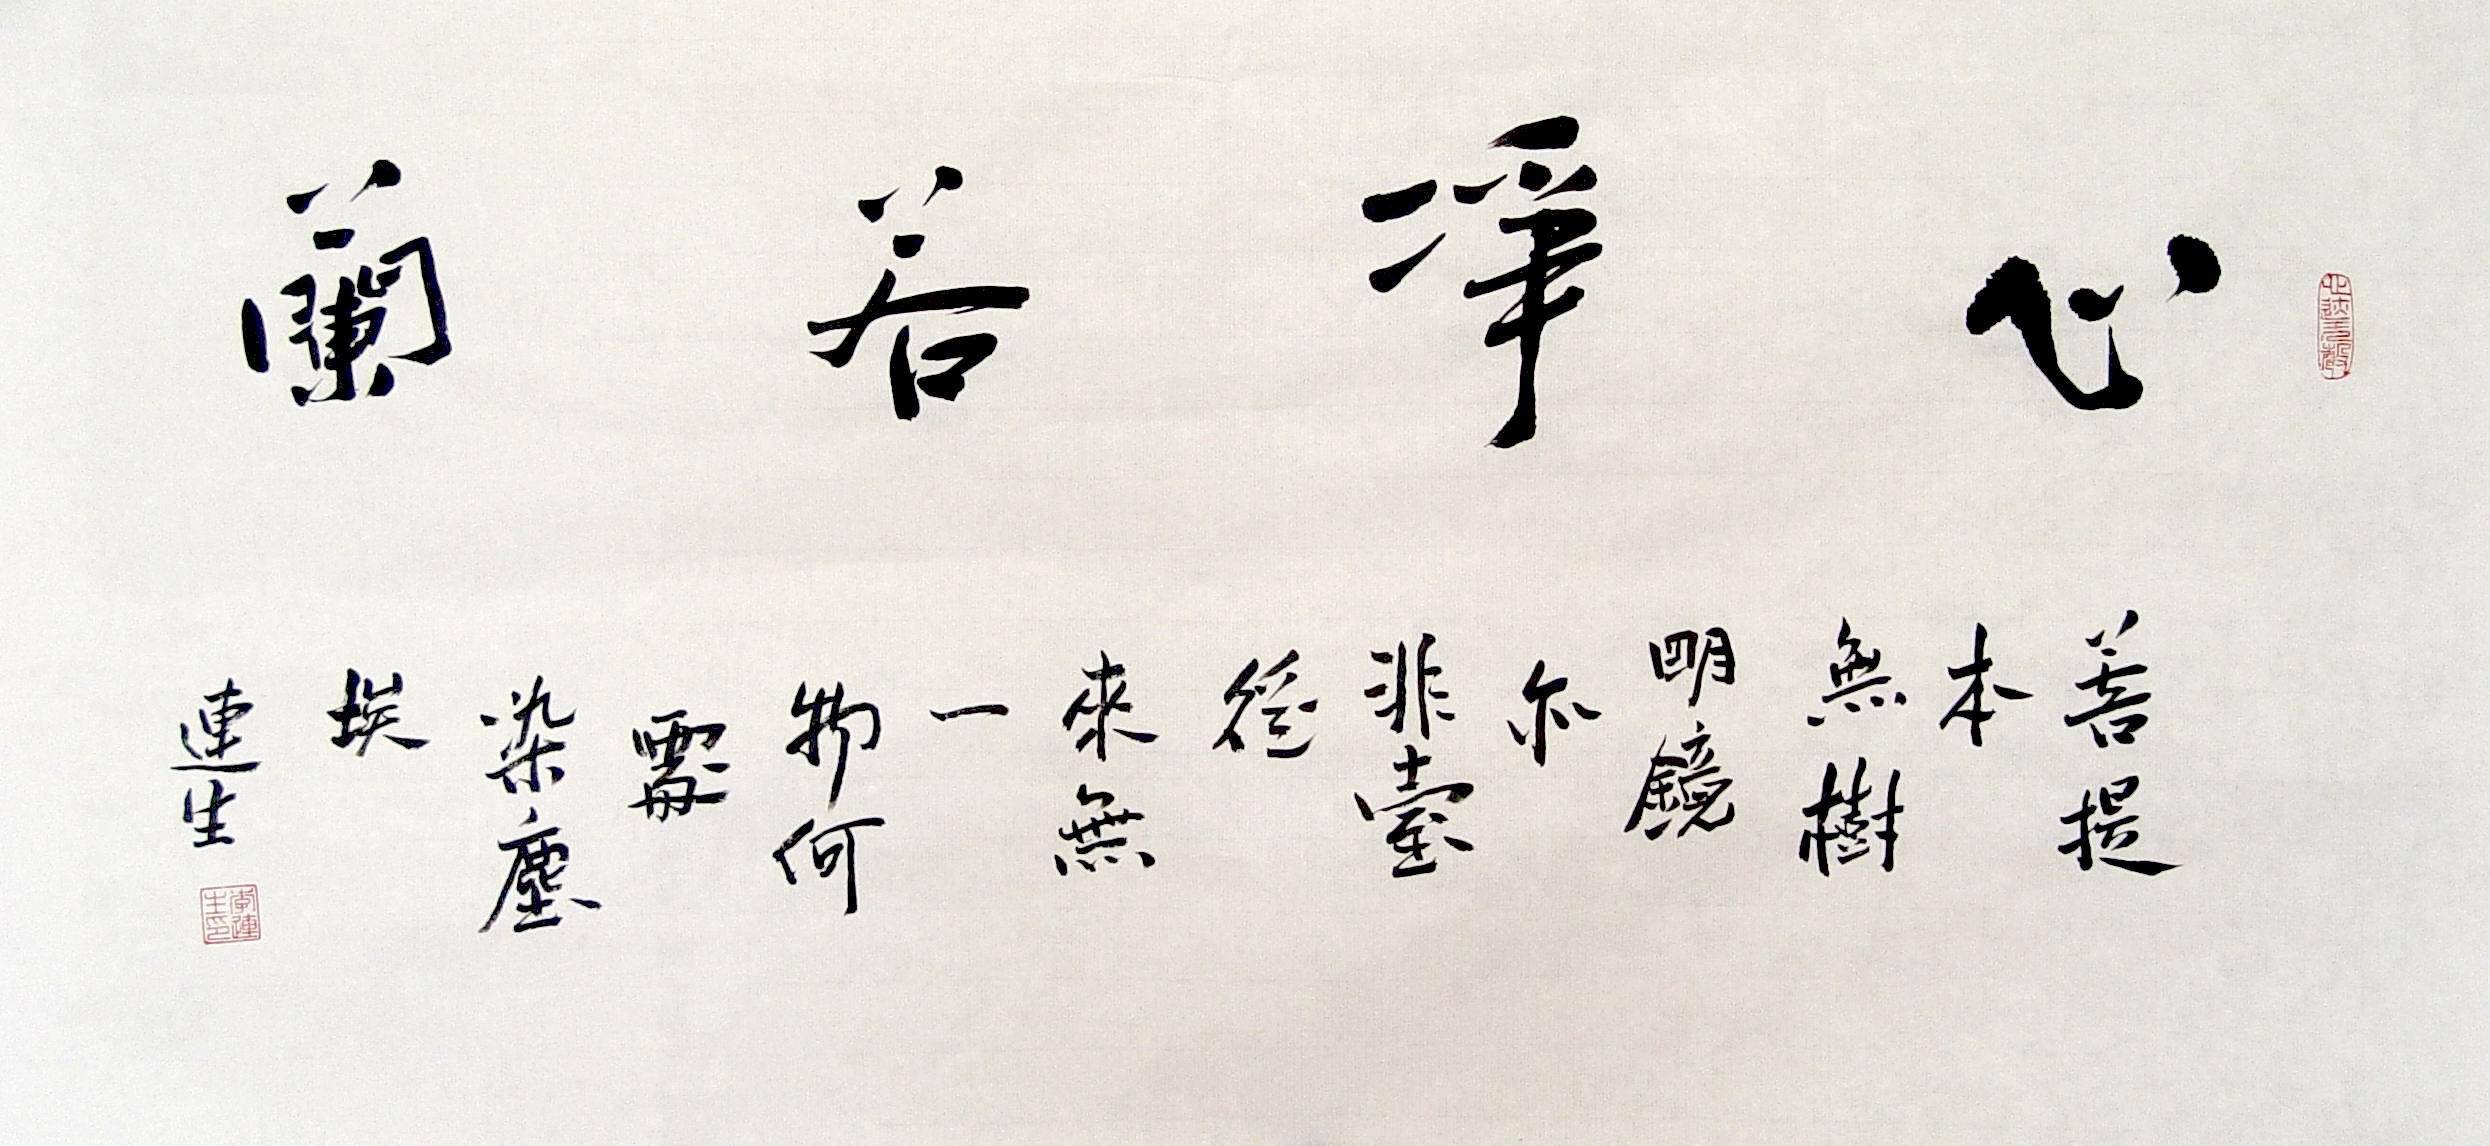 心凈若蘭
菩提
本
無樹
明鏡
亦
非臺
從
來無
一
物何
處
染塵
埃
連生
李連生印